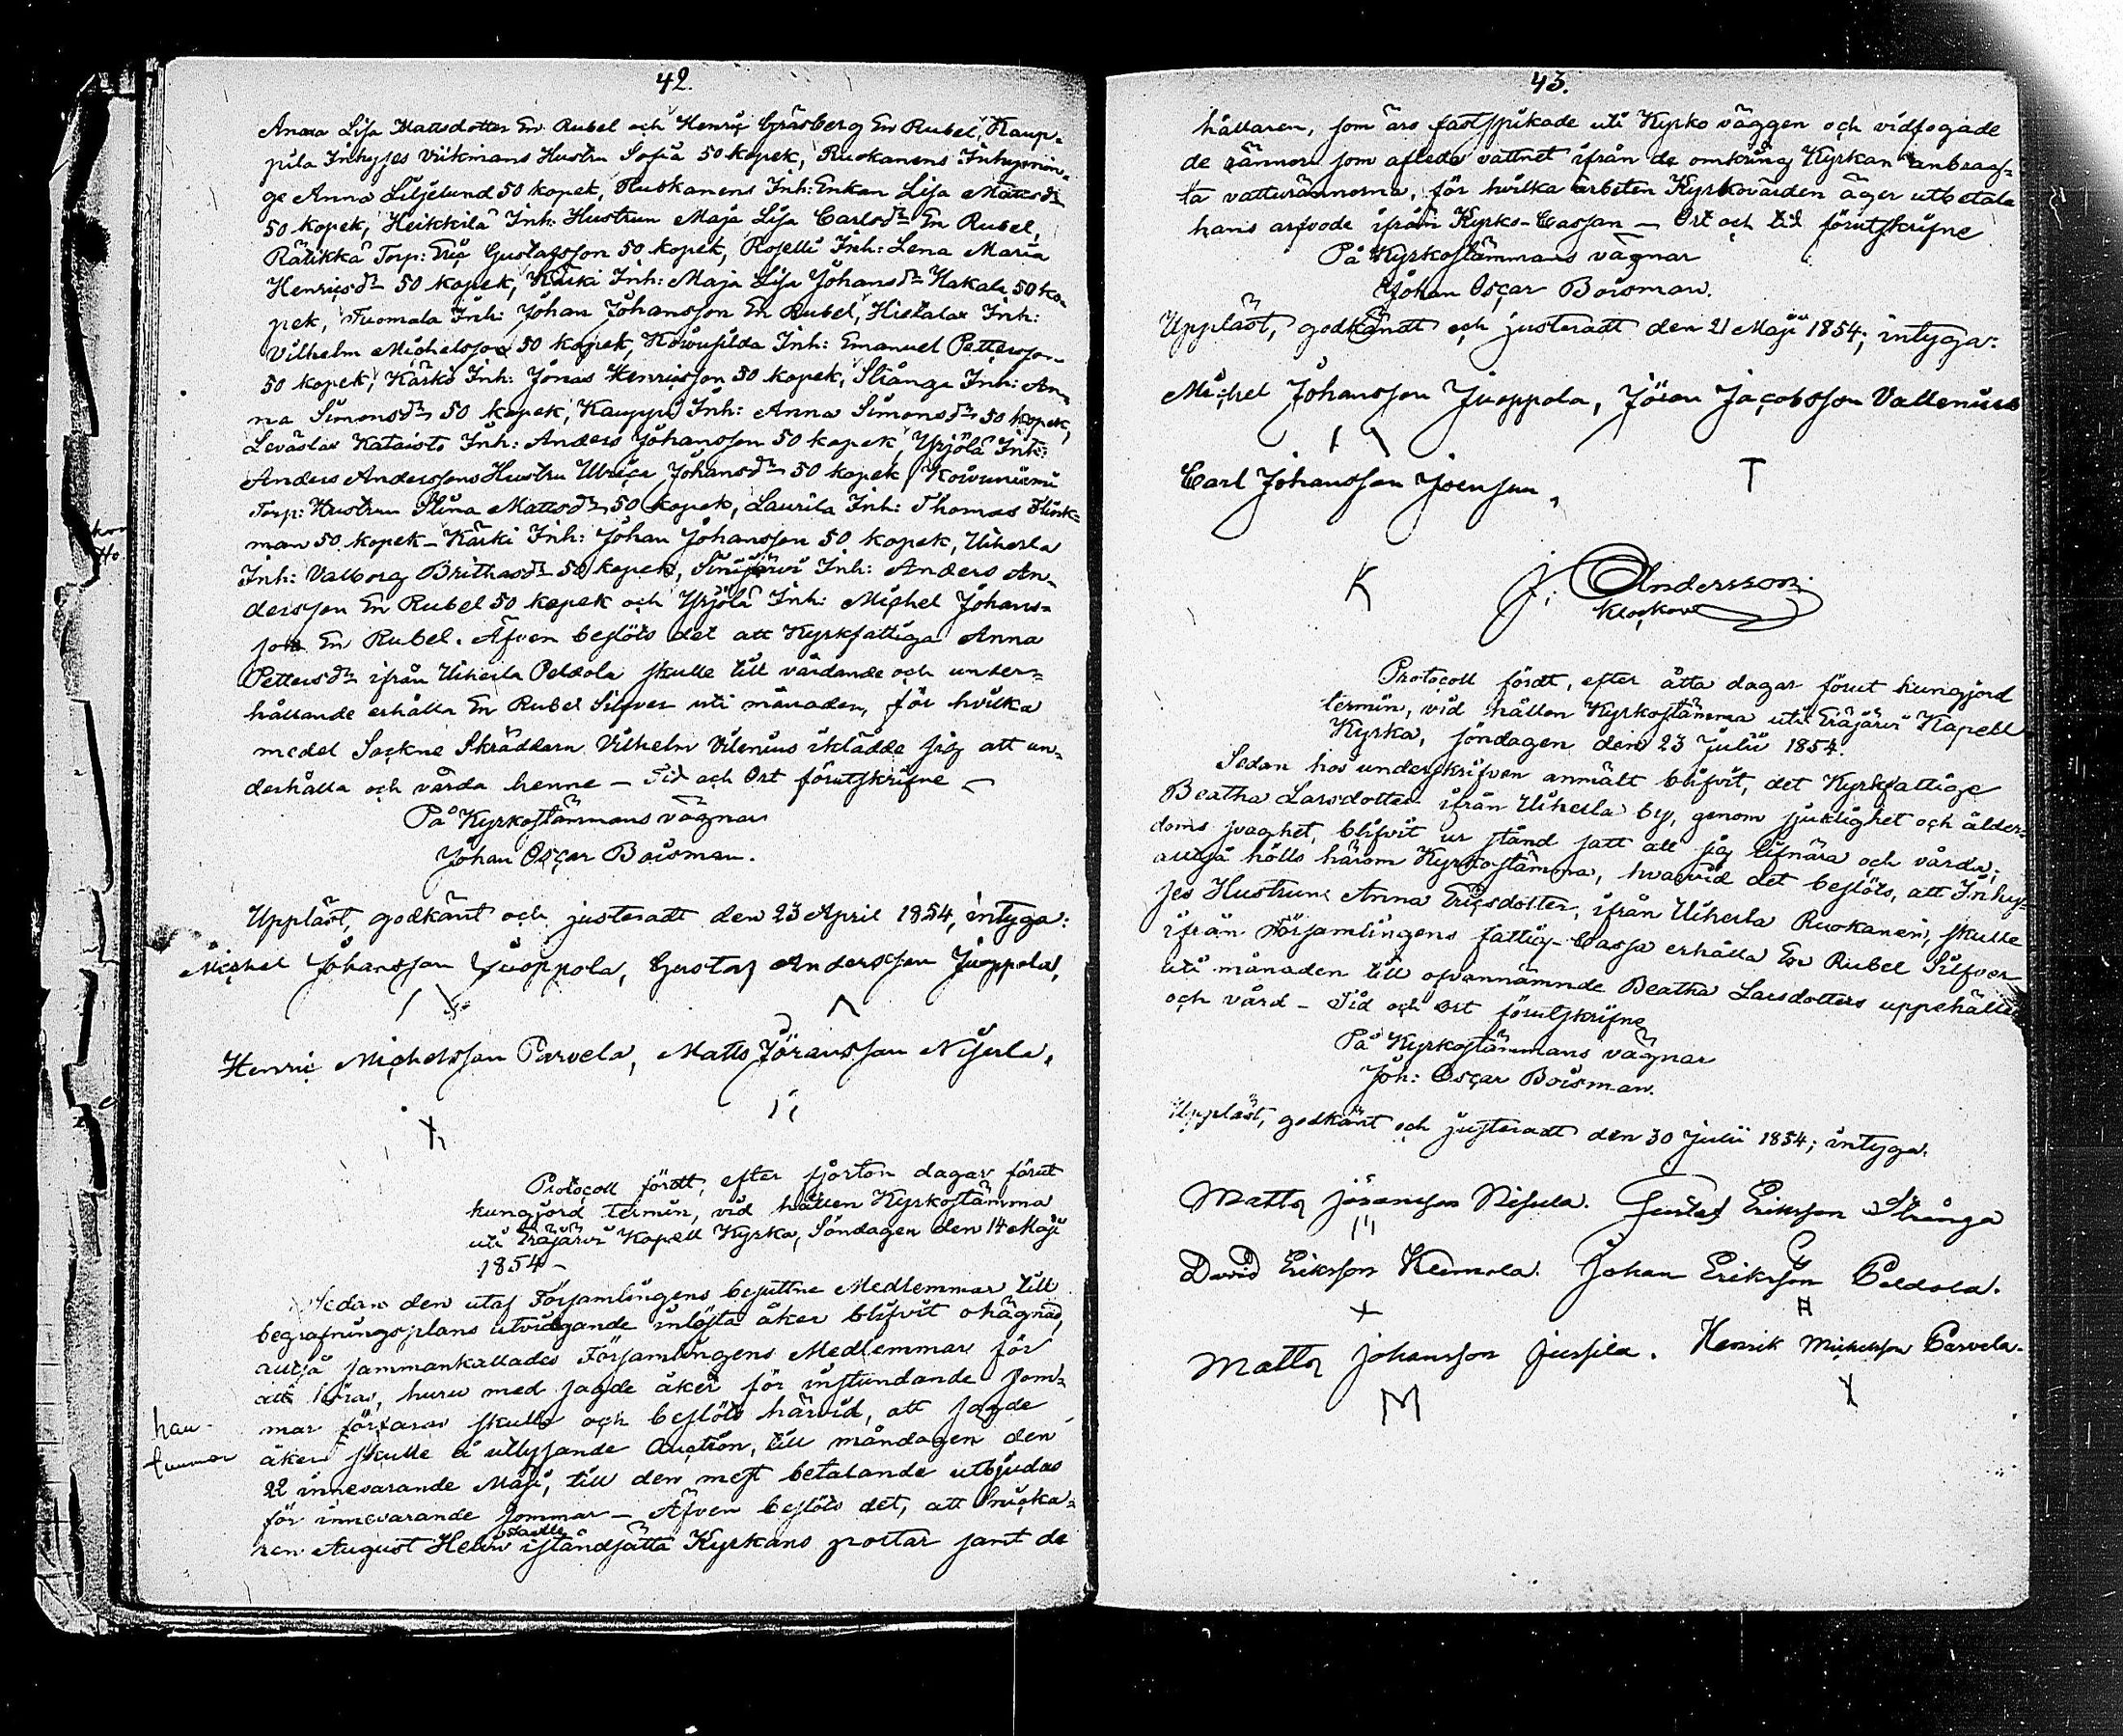 42.
Anna Lisa Mattsdotter En Rubel och Henric Gräsberg En Rubel, Kaup-
pila Inhyses Viikmans Hustru Sofia 50 kopek, Ruokanens Inhysnin-
ge Anna Liljelund 50 kopek, Ruokanens Inh: Enkan Lisa Mattsdr
50 kopek, Heikkilä Inh: Hustrun Maja Lisa Carlsdr En Rubel,
Rätikkä Torp: Eric Gustafsson 50 kopek, Roselli Inh: Lena Maria
Henricsdr 50 kopek, Kärki Inh: Maja Lisa Johansdr Kakala 50 ko-
pek, Tuomala Inh: Johan Johansson En Rubel, Hietalax Inh:
Vilhelm Michelsson 50 kopek, Koivusilda Inh: Emanuel Pettersson
50 kopek, Kärki Inh: Jonas Henricsson 50 kopek, Stånga Inh: An-
na Simonsdr 50 kopek, Kauppi Inh: Anna Simonsdr 50 kopek,
Leväslax Kataisto Inh: Anders Johansson 50 kopek, Yrjölä Inh:
Anders Anderssons Hustru Ulrica Johansdr 50 kopek, Koivuniemi
Torp: Hustrun Stina Mattsdr 50 kopek, Laurila Inh: Thomas Flink-
man 50 kopek - Kärki Inh: Johan Johansson 50 kopek, Uiherla
Inh: Valborg Brithasdr 50 kopek, Sinijärvi Inh: Anders An-
dersson En Rubel 50 kopek och Yrjölä Inh: Michel Johans-
son En Rubel. Äfven beslöts det att Kyrkfattiga Anna
Pettersdr ifrån Uiherla Peldola skulle till vårdande och under-
hållande erhålla En Rubel Silfver uti månaden, för hvilka
medel Sockne Skräddarn Vilhelm Vilenius iklädde sig att un-
derhålla och vårda henne - Tid och Ort förutskrifne
På Kyrkostämmans vägnar
Johan Oscar Boisman.
Uppläst, godkänt och justeradt den 23 April 1854, intyga:
Michel Johansson Juoppola, Gustaf Andersson Juoppola,
Henric Michelsson Parvela, Matts Jöransson Nisula,
Protocoll fördt, efter fjorton dagar förut
kungjord termin, vid hållen Kyrkostämma
uti Eräjärvi Kapell Kyrka, Söndagen den 14 Maji
1854 -
Sedan den utaf Församlingens besuttne Medlemmar till
begrafningsplans utvidgande inlösta åker blifvit ohägnad,
altså sammankallades Församlingens Medlemmar för
att höras, huru med sagde åker för instundande som-
mar förfaras skulle och beslöts härvid, att sagde
åker skulle å utlysande Auction, till måndagen den
22 innevarande Maji, till den mest betalande utbjudas
för innevarande sommar - Äfven beslöts det, att Snicka-
ren August Helin skulle iståndsätta Kyrkans portar samt de
43.
hållaren, som äro fastspikade uti Kyrko väggen och vidfogade
de rännor som afleda vattnet ifrån de omkring Kyrkan anbrag-
ta vatturännorna, för hvilka arbeten Kyrkovärden äger utbetala
hans arfvode ifrån Kyrko-Cassan - Ort och tid förutskrifne
På Kyrkostämmans vägnar
Johan Oscar Boisman.
Uppläst, godkändt och justeradt den 21 Maji 1854; intyga:
Michel Johansson Juoppola, Jöran Jacobsson Vallenius
T
Carl Johansson Joensuu,
K
J: Andersson
Klockare
Protocoll fördt, efter åtta dagar förut kungjord
termin, vid hållen Kyrkostämma uti Eräjärvi Kapell
Kyrka, söndagen den 23 Julii 1854.
Sedan hos underskrifven anmält blifvit, det Kyrkfattige
Beatha Larsdotter ifrån Uiherla by, genom sjuklighet och ålder-
doms svaghet, blifvit ur stånd satt att sig lifnära och vårda;
altså hölls härom Kyrkostämma, hvarvid det beslöts, att Inhy-
ses Hustrun Anna Ericsdotter, ifrån Uiherla Ruokanen, skulle
ifrån Församlingens fattig-Cassa erhålla En Rubel Silfver
uti månaden till ofvannämnde Beatha Larsdotters uppehälle
och vård - Tid och Ort förutskrifne
På Kyrkostämmans vägnar
Joh: Oscar Boisman.
Uppläst, godkänt och justeradt den 30 Julii 1854; intyga.
Matts Jöransson Nisula. Gustaf Eriksson Stånga
David Eriksson Keimola. Johan Eriksson Peldola.
Matts Johansson Jussila. Henrik Michelsson Parvela.
M